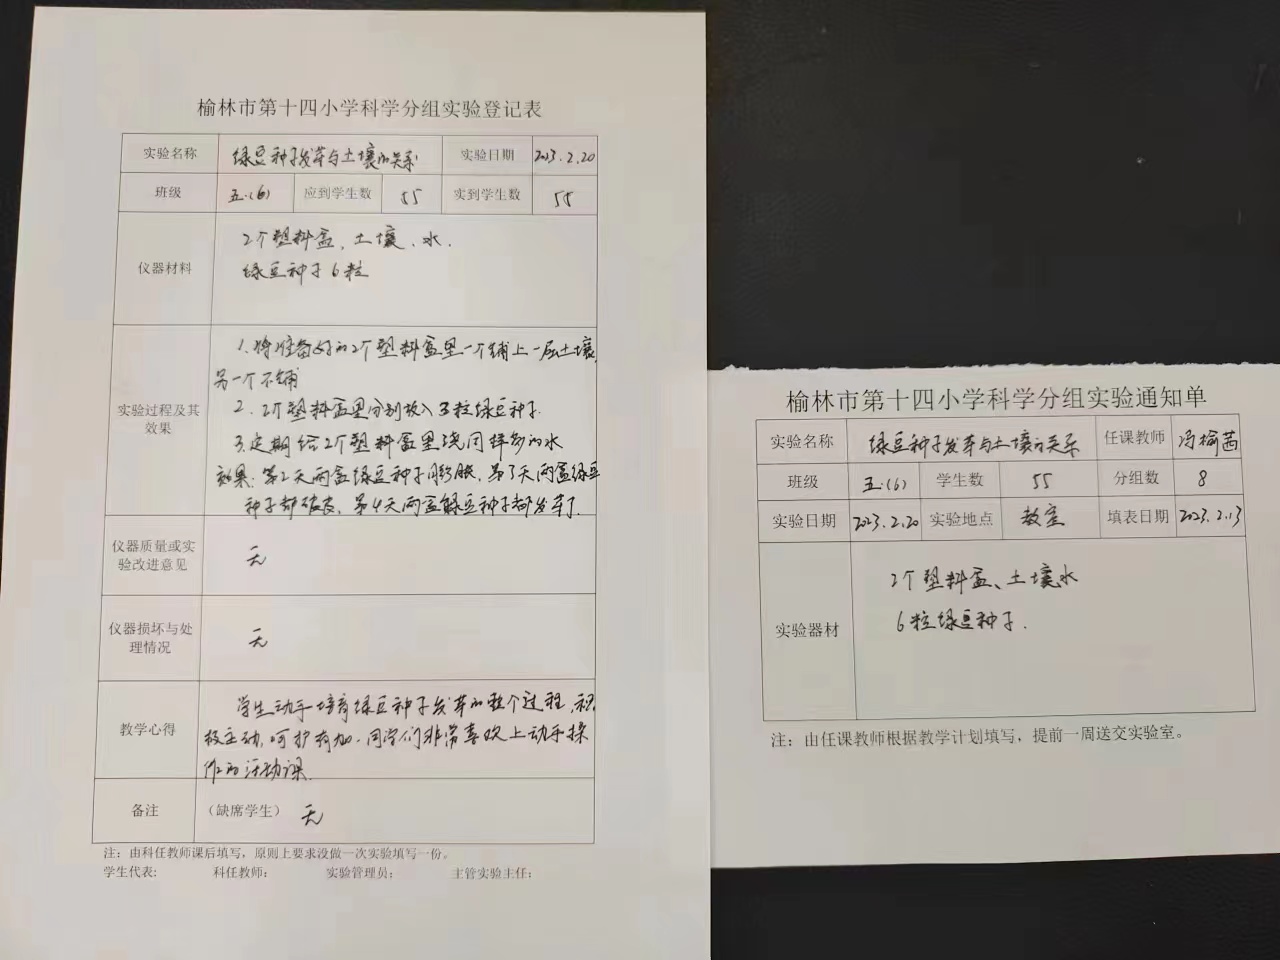 榆林市第十四小学科学分组实验登记表
实验名称 绿豆种子发芽与土壤的关系 实验日期 2023.2.20
班级 五.(6) 应到学生数 55 实到学生数 55
仪器材料
2个塑料盒、土壤、水.
绿豆种子6粒
实验过程及其
效果
1.将准备好的2个塑料盒里一个铺上一层土壤,
另一个不铺
2.2个塑料盒里分别放入3粒绿豆种子.
3.定期给2个塑料盒里浇同样多的水
效果:第2天两盒绿豆种子膨胀,第3天两盒绿豆
种子都破皮,第4天两盒绿豆种子都发芽了.
仪器质量或实
验改进意见
无
仪器损坏与处
理情况
无
教学心得
学生动手培育绿豆种子发芽的整个过程,积
极主动,呵护有加.同学们非常喜欢上动手操
作的活动课.
备注 (缺席学生) 无
注:由科任教师课后填写,原则上要求没做一次实验填写一份。
学生代表: 科任教师: 实验管理员: 主管实验主任:
榆林市第十四小学科学分组实验通知单
实验名称 绿豆种子发芽与土壤的关系 任课教师 冯榆茜
班级 五.(6) 学生数 55 分组数 8
实验日期 2023.2.20 实验地点 教室 填表日期 2023.2.13
实验器材
2个塑料盒、土壤水
6粒绿豆种子.
注:由任课教师根据教学计划填写,提前一周送交实验室。